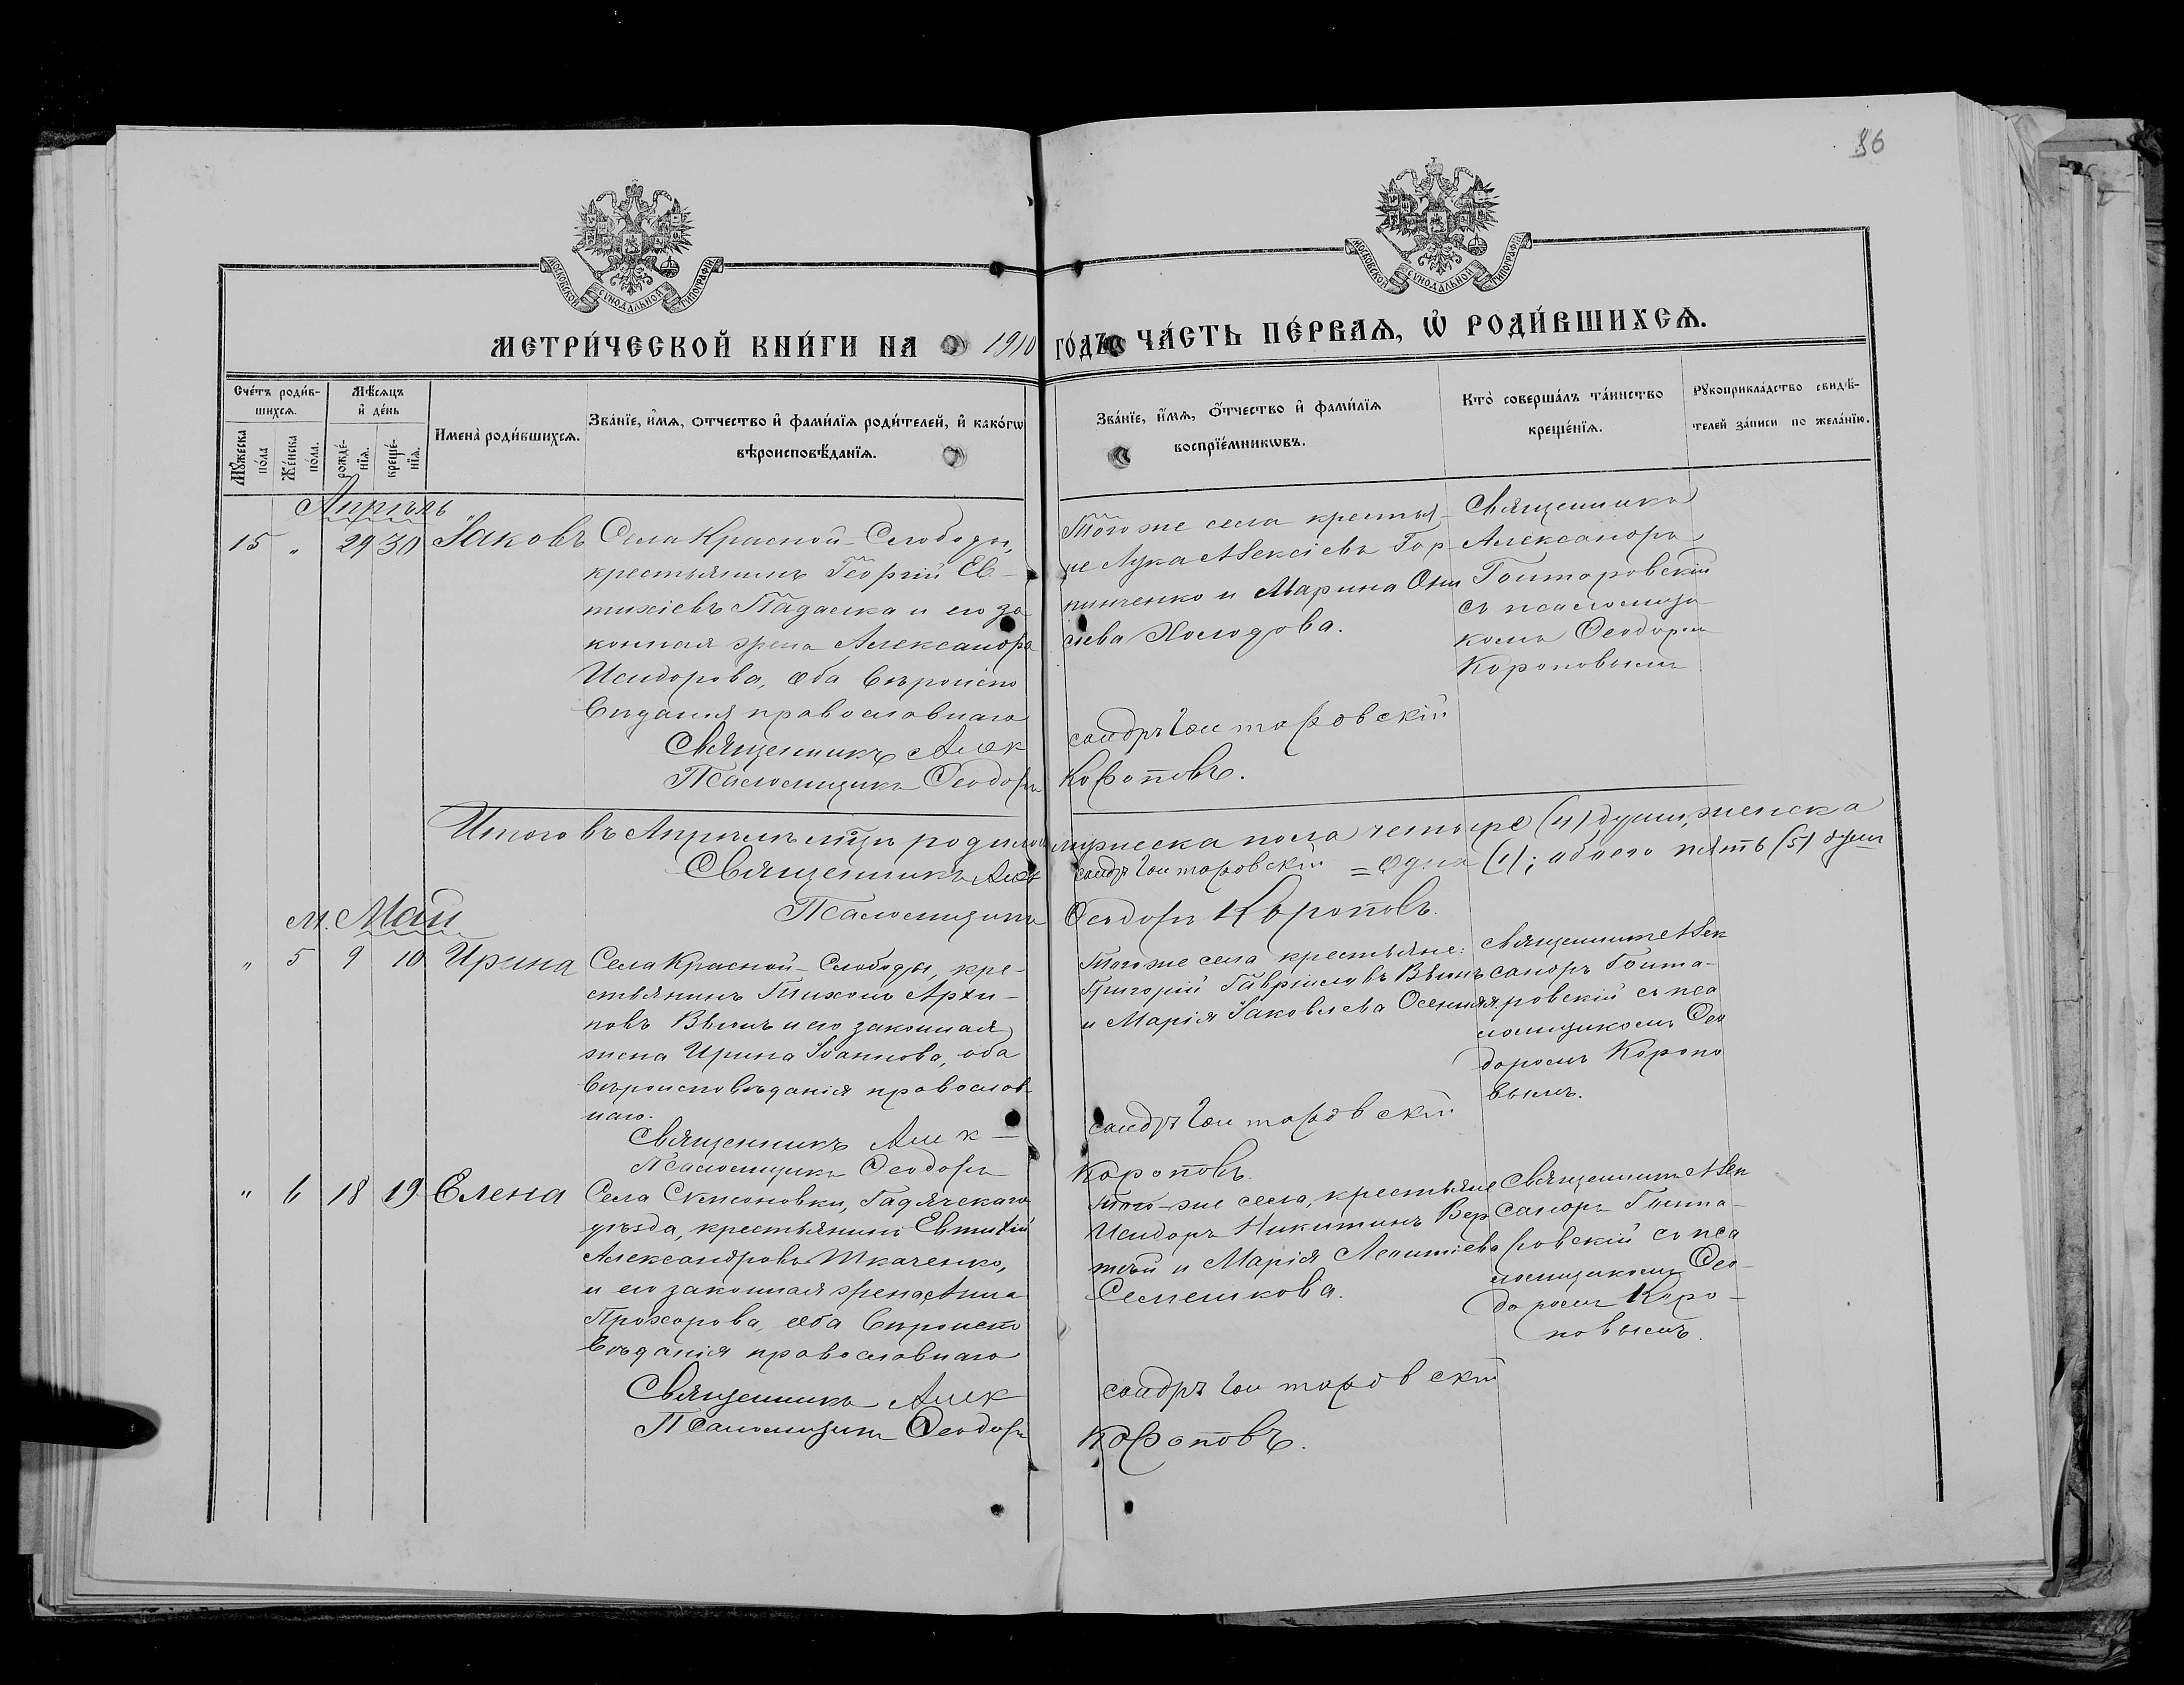 86
МОСКОВСКОЙ СѴНОДАЛЬНОЙ ТИПОГРАФІИ
МОСКОВСКОЙ СѴНОДАЛЬНОЙ ТИПОГРАФІИ
МЕТРИ́ЧЕСКОЙ КНИ́ГИ НА 1910 ГО́ДЪ ЧА́СТЬ ПЕ́РВАѦ, Ѡ҆ РОДИ́ВШИХСѦ.
Сче́тъ роди́в-
шихсѧ.
Мѣ́сѧцъ
и҆ де́нь
Мꙋ́жеска
по́ла
Же́нска
по́ла.
рожде́-
нїѧ.
креще́-
нїѧ.
Имена̀ роди́вшихсѧ.
Зва́нїе, и҆́мѧ, ѻ҆́тчество и҆ фами́лїѧ роди́телей, и҆ како́гѡ
вѣроисповѣ́данїѧ.
Зва́нїе, и҆́мѧ, ѻ҆́тчество и҆ фами́лїѧ
воспрїе́мникѡвъ.
Кто̀ соверша́лъ та́инство
креще́нїѧ.
Рꙋкоприкла́дство свидѣ́-
телей за́писи по жела́нїю.
Апрѣль
15 " 29 30 Іаковъ
Села Красной-Слободы,
крестьянинъ Георгій Ев-
тихіевъ Падалка и его за
конная жена Александра
Исидорова, оба вѣроиспо
вѣданія православнаго
Священникъ Алек
Псаломщикъ Ѳеодоръ
Того же села крестья-
не Лука Алексіевъ Гор
пинченко и Марина Они
сиева Холодова.
сандръ Гонтаровскій
Короповъ.
Священникъ
Александръ
Гонтаровскій
съ псаломщи
комъ Ѳеодоромъ
Короповымъ
Итого въ Апрѣлѣ мцѣ родилось мужеска пола четыре (4) души, женска
= одна (1); обоего пять (5) душъ
Священникъ Алек сандръ Гонтаровскій
Псаломщикъ Ѳеодоръ Короповъ.
М. Май
" 5 9 10 Ирина
Села Красной-Слободы, кре-
стьянинъ Тихонъ Архи-
повъ Вьюнъ и его законная
жена Ирина Іоаннова, оба
вѣроисповѣданія православ
наго.
Священникъ Алек-
Псаломщикъ Ѳеодоръ
Того же села крестьяне:
Григорій Гавріиловъ Вьюнъ
и Марія Іаковлева Осенняя
сандръ Гонтаровскій
Короповъ.
Священникъ Алек
сандръ Гонта-
ровскій съ пса
ломщикомъ Ѳео
доромъ Коропо
вымъ.
" 6 18 19 Елена
Гадячскаго
уѣзда, крестьянинъ Евтихій
Александровъ Ткаченко,
и его законная жена Анна
Прохорова, оба вѣроиспо
вѣданія православнаго
Священникъ Алек
Псаломщикъ Ѳеодоръ
Того-же села, крестьяне
Исидоръ Никитинъ Вер
тій и Марія Леонтіева
Семешкова.
сандръ Гонтаровскій
Короповъ.
Священникъ Алек
сандръ Гонта-
ровскій съ пса
ломщикомъ Ѳео-
доромъ Коро-
повымъ.